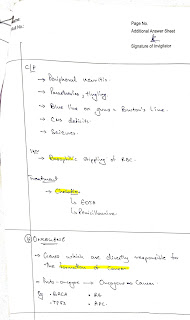 Page No.
Additional Answer Sheet
Signature of Invigilator
C/F
→ Peripheral neuritis.
→ Paresthesias, tingling
→ Blue line on gums = Burton's Line.
→ CNS deficits
→ Seizures.
→ Basophilic stippling of RBC.
Treatment
→ Chelation
↳ EDTA
↳ Penicillamine.
ONCOGENE
→ Genes which are directly responsible for
the formation of Cancer
→ Proto-oncogene → Oncogene → Cancer
Eg • BRCA • RB
• TP53 • APC.